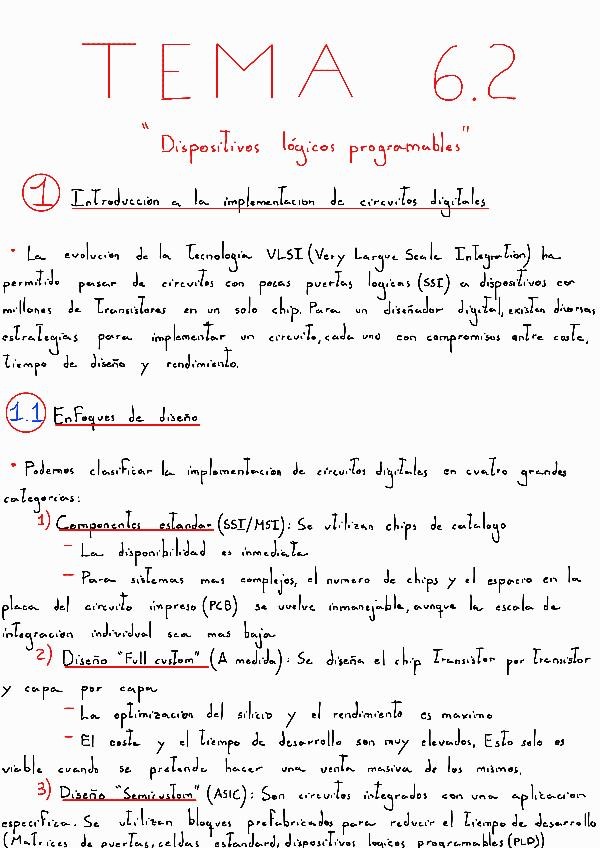 TEMA 6.2
"Dispositivos lógicos programables"
1 Introducción a la implementacion de circuitos digitales
· La evolucion de la tecnologia VLSI (Very Largue Scale Integration) ha
permitido pasar de circuitos con pocas puertas logicas (SSI) a dispositivos con
millones de transistores en un solo chip. Para un diseñador digital, existen diversas
estrategias para implementar un circuito, cada uno con compromisos entre coste,
tiempo de diseño y rendimiento.
1.1 Enfoques de diseño
· Podemos clasificar la implementacion de circuitos digitales en cuatro grandes
categorias:
1) Componentes estandar (SSI/MSI): Se utilizan chips de catalogo
- La disponibilidad es inmediata
- Para sistemas mas complejos, el numero de chips y el espacio en la
placa del circuito impreso (PCB) se vuelve inmanejable, aunque la escala de
integracion individual sea mas baja
2) Diseño "Full custom" (A medida): Se diseña el chip transistor por transistor
y capa por capa
- La optimizacion del silicio y el rendimiento es maximo
- El coste y el tiempo de desarrollo son muy elevados, Esto solo es
viable cuando se pretende hacer una venta masiva de los mismos,
3) Diseño "Semicustom" (ASIC): Son circuitos integrados con una aplicacion
especifica. Se utilizan bloques prefabricados para reducir el tiempo de desarrollo
(Matrices de puertas, celdas estandard, dispositivos logicos programables (PLD))